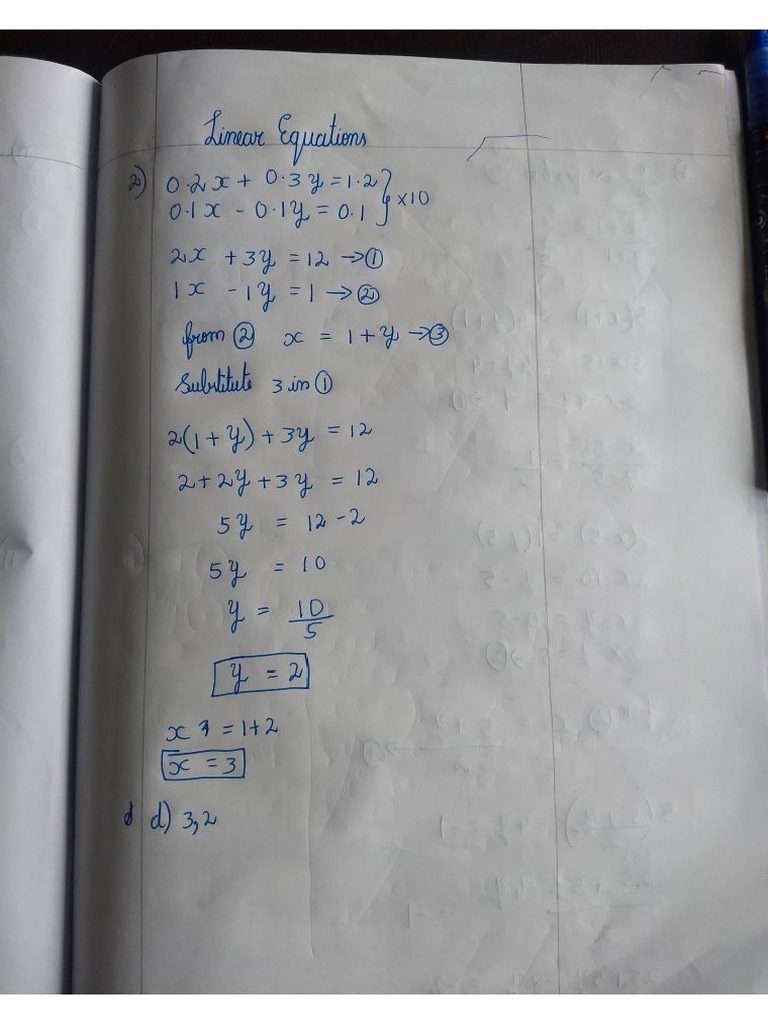 Linear Equations
2) 0.2x + 0.3y = 1.2
0.1x - 0.1y = 0.1 } x10
2x + 3y = 12 → ①
1x - 1y = 1 → ②
from ② x = 1 + y → ③
Substitute 3 in ①
2(1 + y) + 3y = 12
2 + 2y + 3y = 12
5y = 12 - 2
5y = 10
y = 10/5
y = 2
x = 1+2
x = 3
d) 3,2